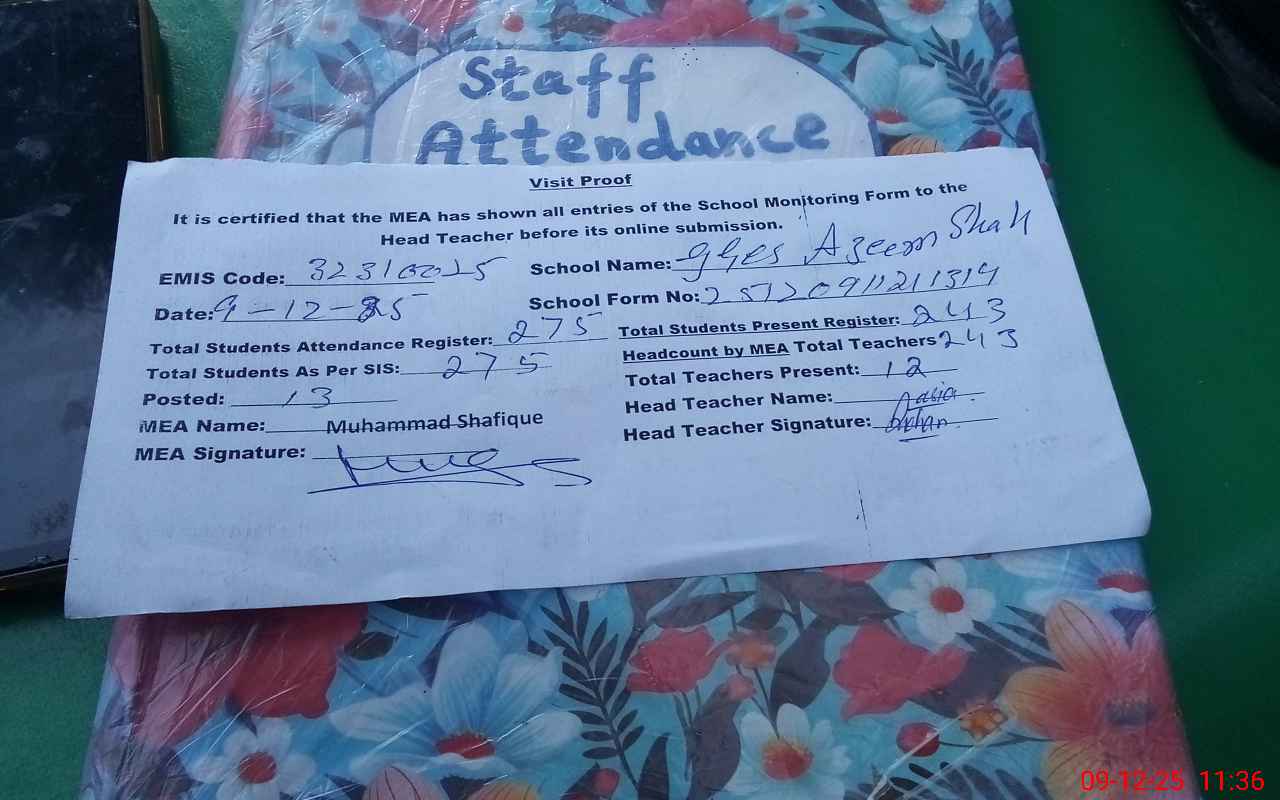 Staff
Attendance
Visit Proof
It is certified that the MEA has shown all entries of the School Monitoring Form to the
Head Teacher before its online submission.
EMIS Code: 32310025 School Name: GGES Azeem Shah
Date: 9-12-25 School Form No: 25120911211314
Total Students Attendance Register: 275 Total Students Present Register: 243
Total Students As Per SIS: 275 Headcount by MEA Total Teachers 243
Posted: 13 Total Teachers Present: 12
MEA Name: Muhammad Shafique Head Teacher Name: Aasia
MEA Signature: Head Teacher Signature:
09-12-25 11:36